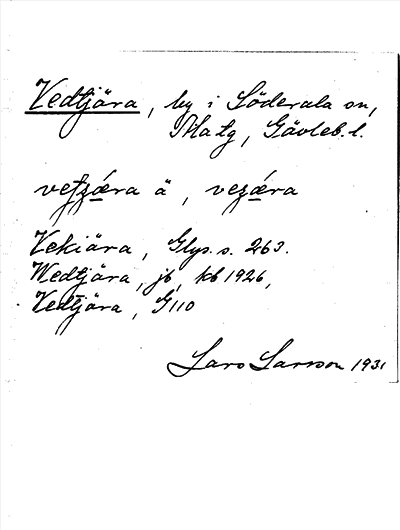 Vedtjära, by i Söderala sn,
Gävleb. l.
ä,
Vekiära, Glys. s. 263.
Wedtjära, jb, kb 1926,
Vedtjära, G110
Lars Larsson 1931